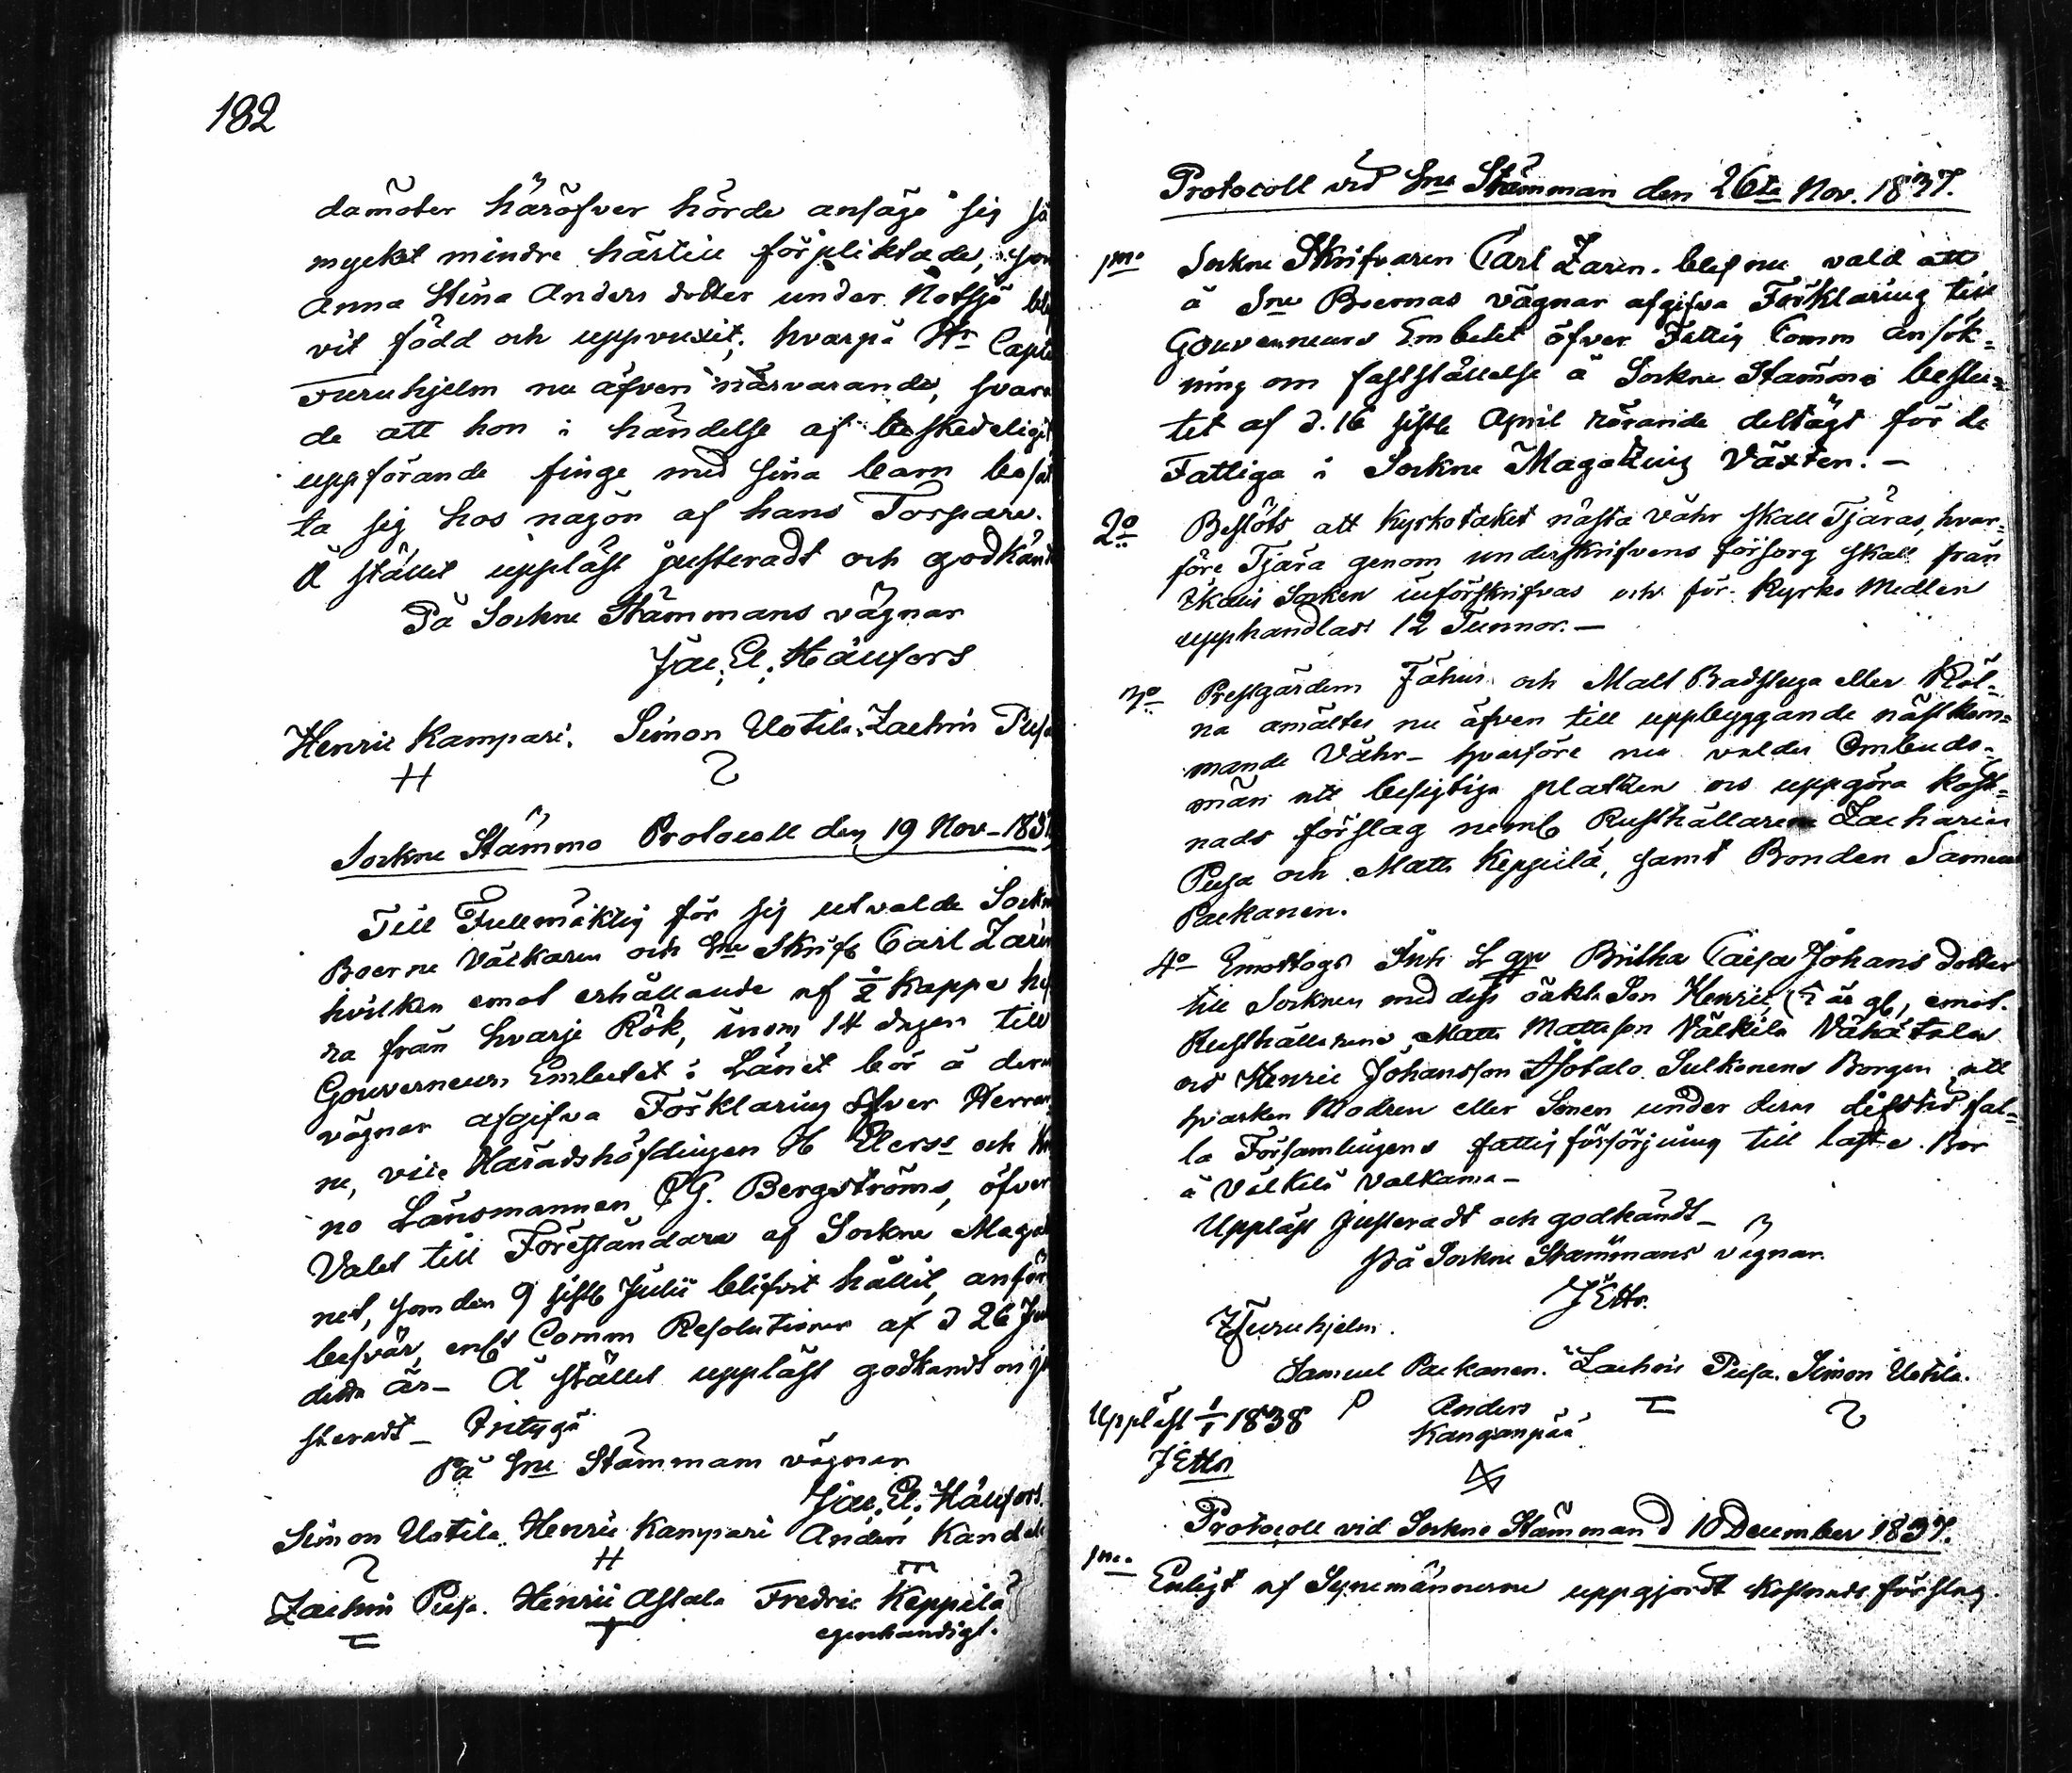 182
damöter häröfver hörde ansågo sig så
mycket mindre härtill förpliktade, som
Anna Stina Anders dotter under Notsjö blif
vit född och uppvuxit; hvarpå Hr Capt
Furuhjelm nu äfven närvarande, svara
de att hon i händelse af beskedeligt
uppförande finge med sina barn besät
ta sig hos någon af hans Torpare.
Å stället uppläst justeradt och godkändt
På Sockne Stämmans vägnar
Jac. El. Häufors
Henric Kampari. Simon Uotila. Zachris Pusa
H
Sockne Stämmo Protocoll den 19 Nov. 1837
Till Fullmäktig för sig utvalde Sockne
Boerne Väckaren och Sne Skrifv Carl Zarin
hvilken emot erhållande af ½ kappe
ra från hvarje Rök, inom 14 dagar till
Gouverneurs Embetet i Länet bör å deras
vägnar afgifva Förklaring öfver Herrar
ne, vice Häradshöfdingen H och
no Länsmannen G. Bergströms, öfver
Valet till Föreståndare af Sockne Maga
net, som den 9 sistl Julii blifvit hållit, anför
besvär, enl Comm Resolutioner af d 26
detta år – Å stället uppläst godkändt och ju
steradt – betyga
På Sne Stämmans vägnar
Jac. El. Häufors.
Simon Uotila Henric Kampari Anders
H
Zachris Pusa. Henric Astala Fredric Keppilä
egenhändigt.
Protocoll vid Sne Stämman den 26te Nov. 1837.
1mo Sockne Skrifvaren Carl Zarin blef nu vald att
å Sne Boernas vägnar afgifva Förklaring till
Gouverneurs Embetet öfver Fattig Comm ansök=
ning om fastställelse å Sockne Stämmo beslu=
tet af d. 16 sistl April rörande deltägt för de
Fattiga i Sockne Magatzins Växten. –
2o Beslöts att Kyrkotaket nästa Våhr skall Tjäras, hvar=
före Tjära genom underskrifvens försorg skall från
Ikalis Socken införskrifvas och för Kyrko Medlen
upphandlas 12 Tunnor. –
3o Prestgårdens Fähus och Malt Badstuga eller Röl=
na anmältes nu äfven till uppbyggande nästkom=
mande Våhr – hvarföre nu valdes Ombuds=
män att besigtiga platzen och uppgöra kost=
nads förslag neml Rusthållarene Zacharias
Pusa och Matts Keppilä, samt Bonden Samuel
Packanen.
4o Emottogs Inh Britha Caisa Johans dotter
till Socknen med dess oäkta Son Henric, år gl, emot
Rusthållarene Matts Mattsson Välkilä Vähätalo
och Henric Johansson Astala Sulkonens Borgen, att
hvarken Modren eller Sonen under deras lifstid fal=
la Församlingens fattigförsörjning till last. Bor
å Välkilä Valkama –
Uppläst Justeradt och godkändt –
På Sockne Stämmans vägnar.
J Ettr.
Furuhjelm.
Samuel Packanen. Zachris Pusa. Simon Uotila.
P
Anders
Kanganpää
Uppläst 1/1 1838
J Ettr
Protocoll vid Sockne Stämman d 10 December 1837.
1mo Enligt af Synemännerne uppgjordt Kostnads förslag